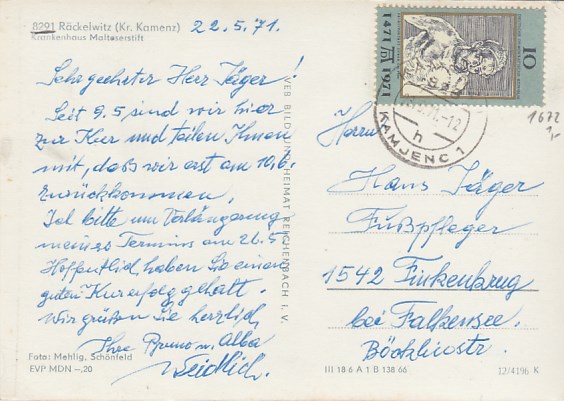 8291 Räckelwitz (Kr. Kamenz)
Krankenhaus Malteserstift
22.5.71.
Sehr geehrter Herr Jäger!
Seit 9.5. sind wir hier
zur Kur und teilen Ihnen
mit, daß wir erst am 10.6.
zurückkommen.
Ich bitte um Verlängerung
meines Termins am 26.5
Hoffentlich haben Sie einen
guten Kurerfolg gehabt.
Wir grüßen Sie herzlich
Ihre Bruno u. Alba
Weidlich.
Foto: Mehlig, Schönfeld
EVP MDN –,20
VEB BILD UND HEIMAT REICHENBACH I. V.
1471 1971
10
71.-12
h
KAMJENC 1
1672
1,-
Herrn
Hans Jäger
Fußpfleger
1542 Finkenkrug
bei Falkensee.
Böcklinstr.
III 18 6 A 1 B 138 66
12/4196 K